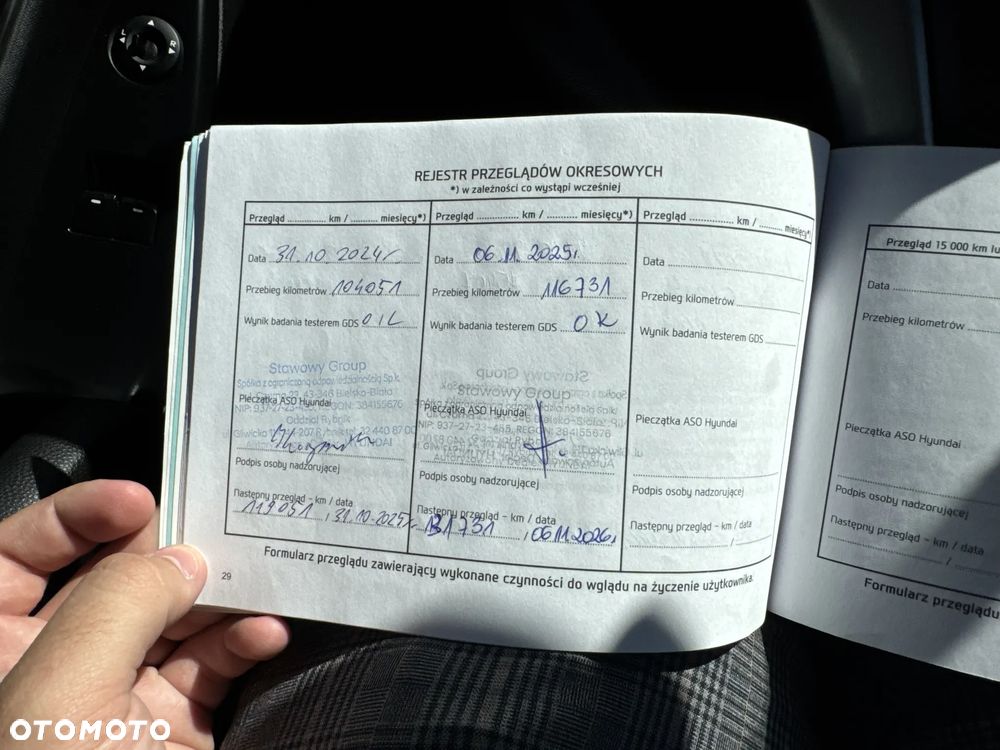 REJESTR PRZEGLĄDÓW OKRESOWYCH
*) w zależności co wystąpi wcześniej
Przegląd ............... km / .......... miesięcy*)
Data 31.10.2024r
Przebieg kilometrów 104051
Wynik badania testerem GDS OK
Stawowy Group
Spółka z ograniczoną odpowiedzialnością Sp.k.
43-346 Bielsko-Biała
Pieczątka ASO Hyundai
NIP: 937-27-23-485, REGON: 384155676
Oddział Rybnik
Podpis osoby nadzorującej
Następny przegląd – km / data
119051, 31.10.2025r.
Przegląd ............... km / .......... miesięcy*)
Data 06.11.2025r
Przebieg kilometrów 116731
Wynik badania testerem GDS OK
Stawowy Group
Pieczątka ASO Hyundai
NIP: 937-27-23-485, REGON: 384155676
Podpis osoby nadzorującej
Następny przegląd – km / data
131731, 06.11.2026r
Przegląd ............... km / .......... miesięcy*)
Data
Przebieg kilometrów
Wynik badania testerem GDS
Pieczątka ASO Hyundai
Podpis osoby nadzorującej
Następny przegląd – km / data
Formularz przeglądu zawierający wykonane czynności do wglądu na życzenie użytkownika.
29
Przegląd 15 000 km lu
Data
Przebieg kilometrów
Pieczątka ASO Hyundai
Podpis osoby nadzorującej
Następny przegląd – km / data
Formularz przeglądu
L
R
OTOMOTO